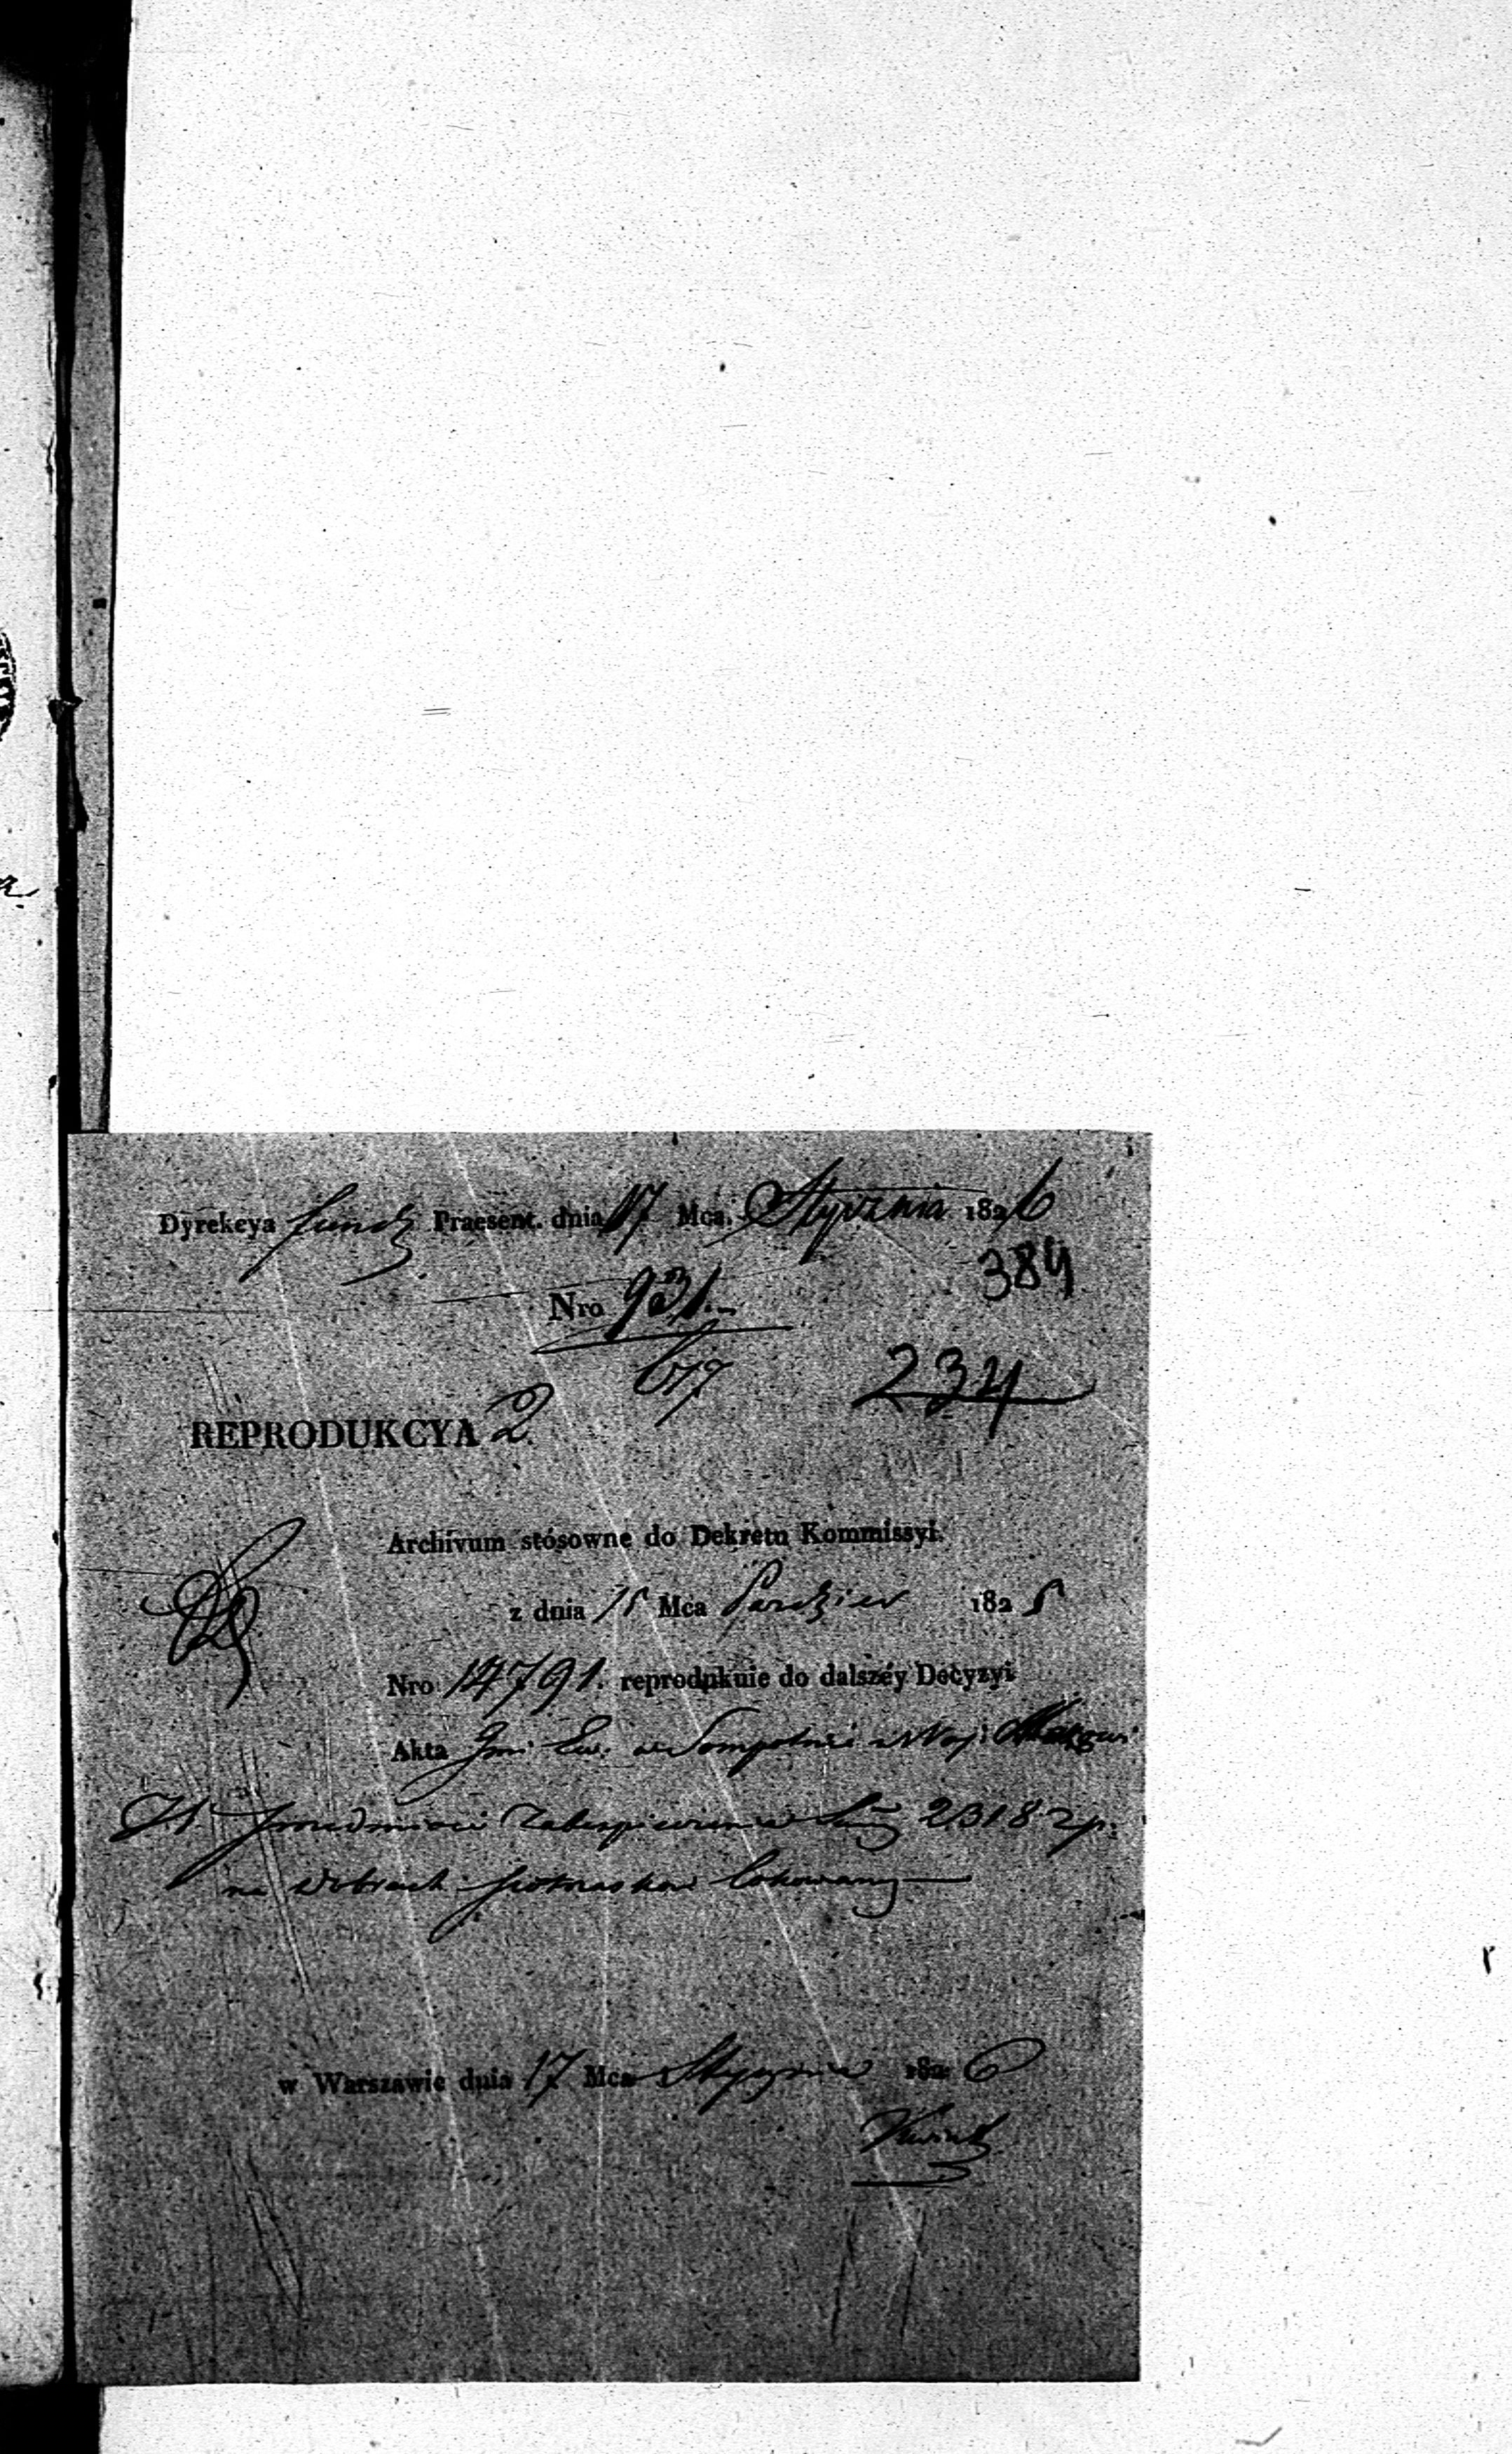 Dyrekcya fundz Praesent. dnia 17 Mca. Stycznia 1826
384
Nro 931.
617
234
REPRODUKCYA 2.
Archivum stósowne do Dekretu Kommissyi.
z dnia 15 Mca Pazdzier 1825
Nro 14791. reprodukuie do dalszéy Decyzyi
Akta Gmi Ew. w Sompolnie w Woj: Mazow:
W przedmiocie Zabezpieczenia Sum̃y 2318 zp:
na dobrach lokowany
w Warszawie dnia 17 Mca Stycznia 1826